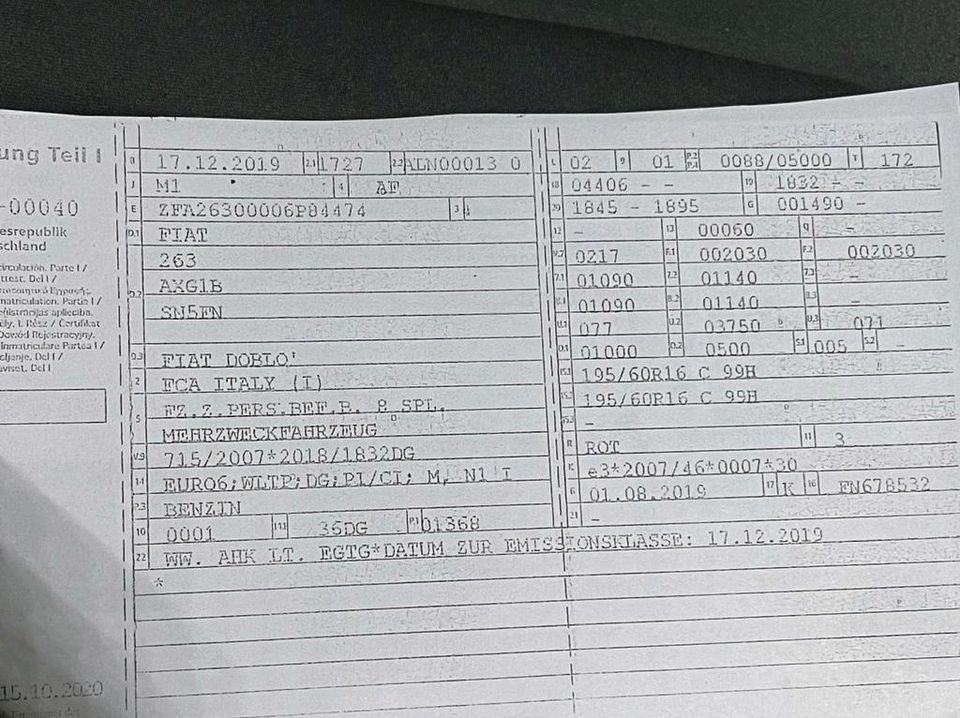 ung Teil I
-00040
esrepublik
schland
B 17.12.2019 2.1 1727 2.2 ALN00013 0
J M1 4 AF
E ZFA26300006P84474 3
D.1 FIAT
263
D.2 AXG1B
SN5FN
D.3 FIAT DOBLO'
2 FCA ITALY (I)
5 FZ.Z.PERS.BEF.B. 8 SPL.
MEHRZWECKFAHRZEUG
V.9 715/2007*2018/1832DG
14 EURO6;WLTP;DG;PI/CI; M, N1 I
P.3 BENZIN
10 0001 14.1 36DG P.1 01368
L 02 9 01 P.2 P.4 0088/05000 T 172
18 04406 - - 19 1832 - -
20 1845 - 1895 G 001490 -
12 - 13 00060 Q -
V.7 0217 F.1 002030 F.2 002030
7.1 01090 7.2 01140 7.3 -
8.1 01090 8.2 01140 8.3 -
U.1 077 U.2 03750 U.3 071
O.1 01000 O.2 0500 S.1 005 S.2 -
15.1 195/60R16 C 99H
15.2 195/60R16 C 99H
15.3 -
R ROT 11 3
K e3*2007/46*0007*30
6 01.08.2019 17 K 16 FN678532
21 -
22 WW. AHK LT. EGTG*DATUM ZUR EMISSIONSKLASSE: 17.12.2019
*
15.10.2020